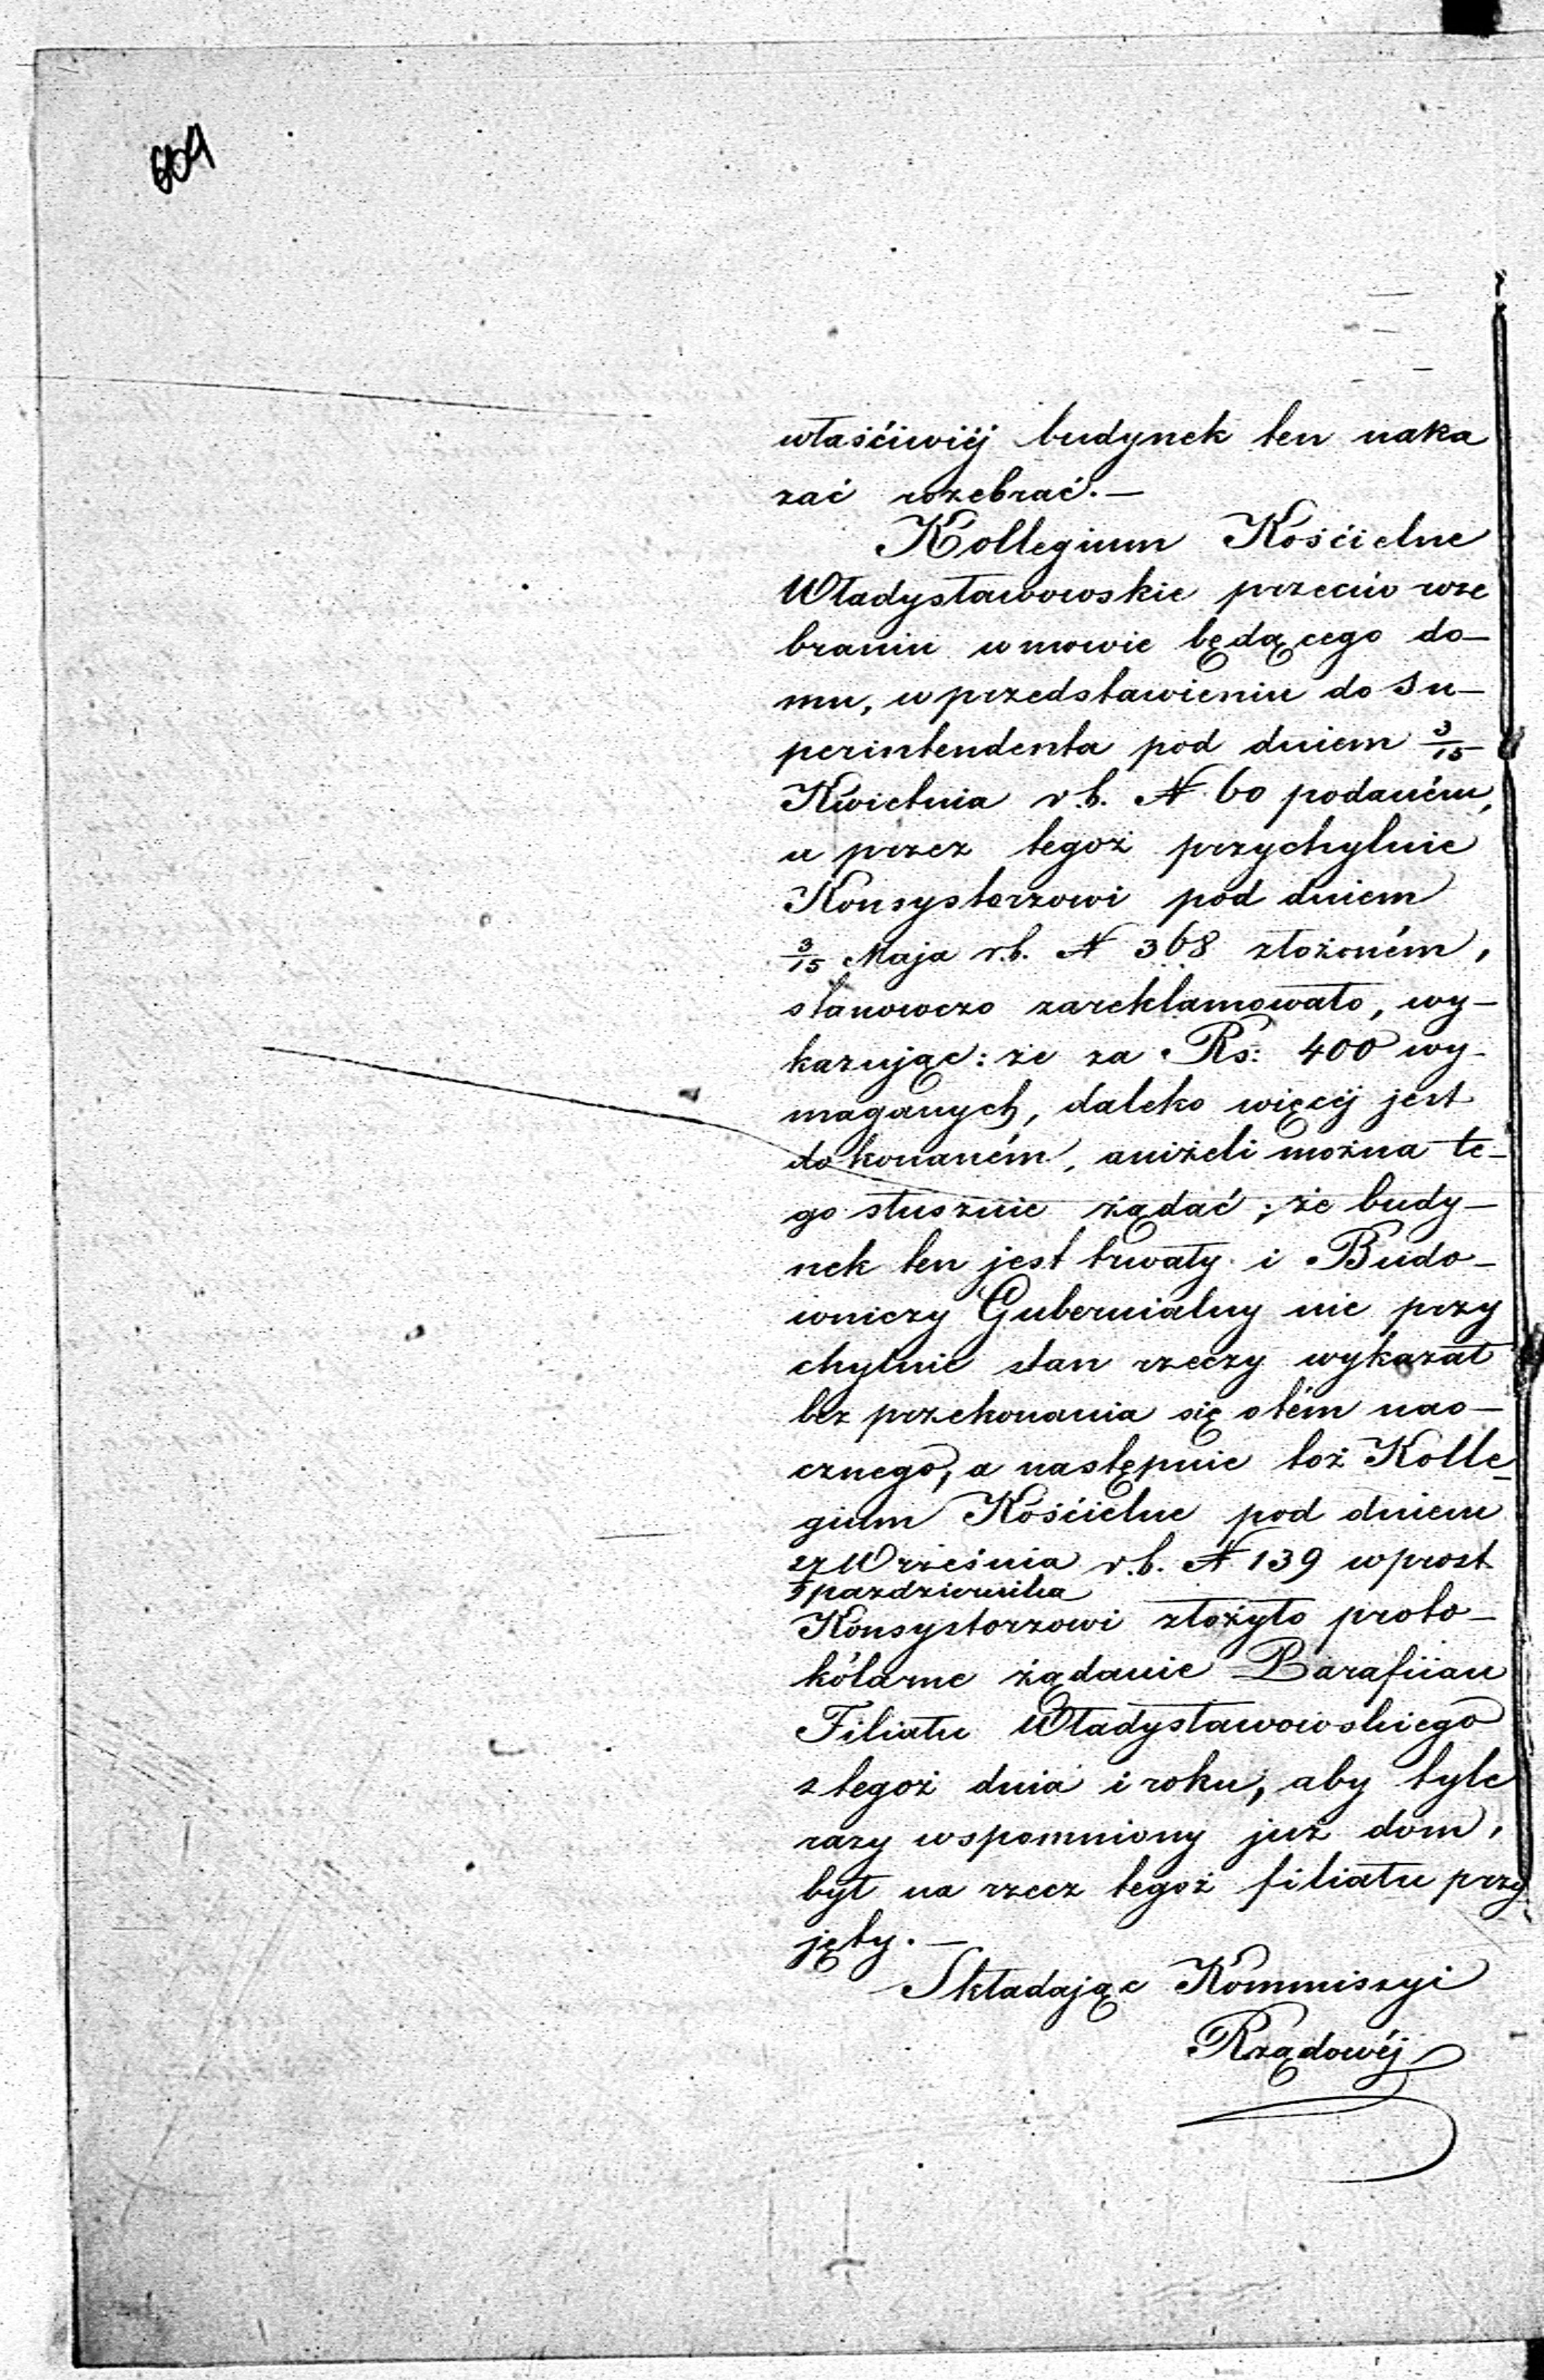 604
właściwiéj budynek ten naka
zać rozebrać. —
Kollegium Kościelne
Władysławowskie przeciw roze
braniu w mowie będącego do—
mu, w przedstawieniu do Su—
perintendenta pod dniem 3/15
Kwietnia r.b. N 60 podaném,
a przez tegoż przychylnie
Konsystorzowi pod dniem
3/15 Maja r.b. N 368 złożoném,
stanowczo zareklamowało, wy—
kazując: że za Rs: 400 wy-
maganych, daleko więcéj jest
dokonaném, aniżeli można te-
go słusznie żądać; że budy—
nek ten jest trwały i Budo—
wniczy Gubernialny nie przy
chylnie stan rzeczy wykazał
bez przekonania się o tém nao—
cznego, a następnie toż Kolle-
gium Kościelne pod dniem
27 Września r.b. N 139 wprost
9 pazdziernika
Konsystorzowi złożyło proto—
kólarne żądanie Parafiian
Filiału Władysławowskiego
z tegoż dnia i roku, aby tyle
razy wspomniony już dom,
był na rzecz tegoż filiału przy
jęty. —
Składając Kommiszyi
Rządowéj